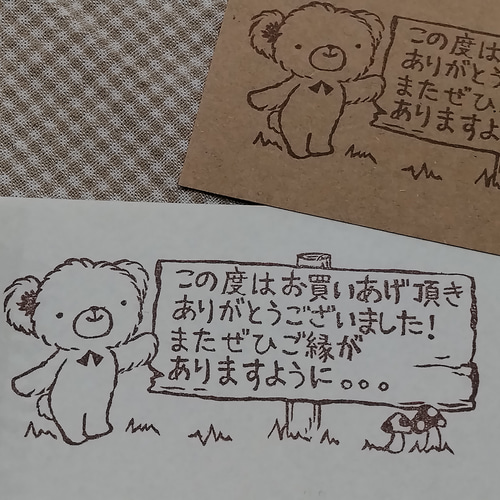 この度は
ありがとう
またぜひ
ありますよ
この度はお買いあげ頂き
ありがとうございました!
またぜひご縁が
ありますように。。。